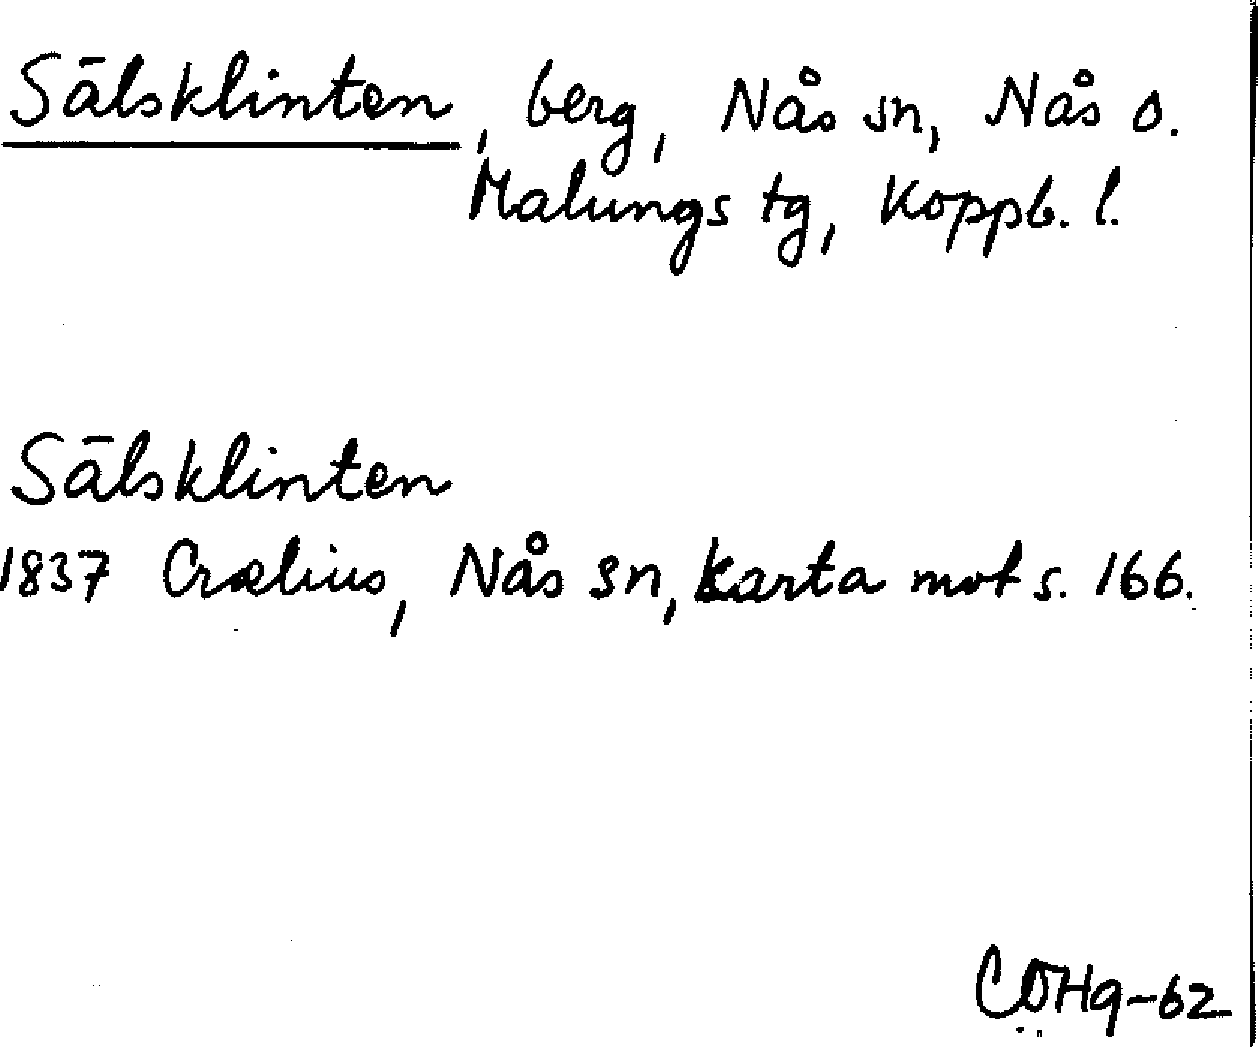 Sälsklinten, berg, Nås sn, Nås o.
Malungs tg, Koppb. l.
Sälsklinten
1837 Crælius, Nås sn, karta mot s. 166.
CÖHg-62